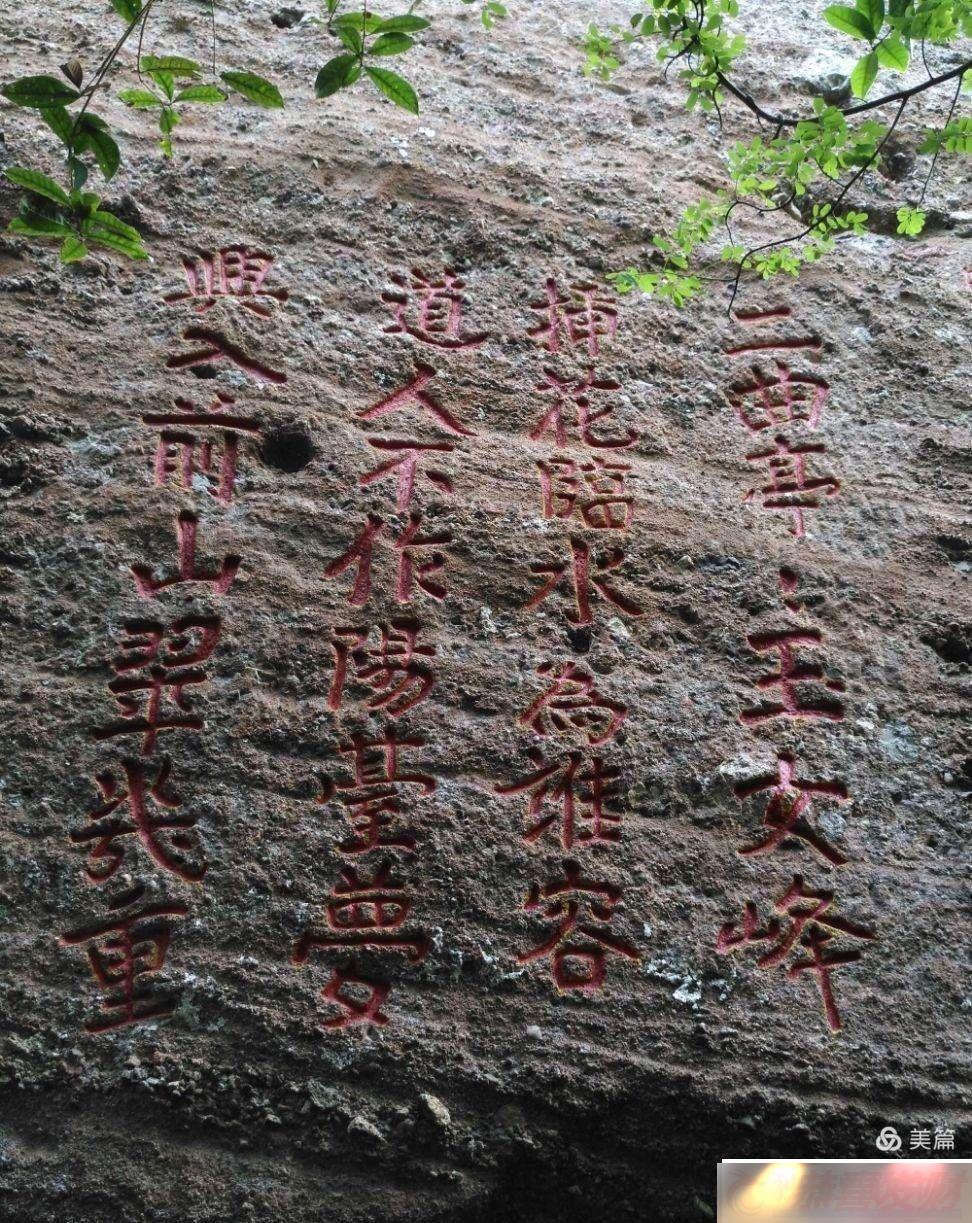 二曲亭〻玉女峰
插花臨水為誰容
道人不作陽臺夢
興入前山翠幾重
美篇